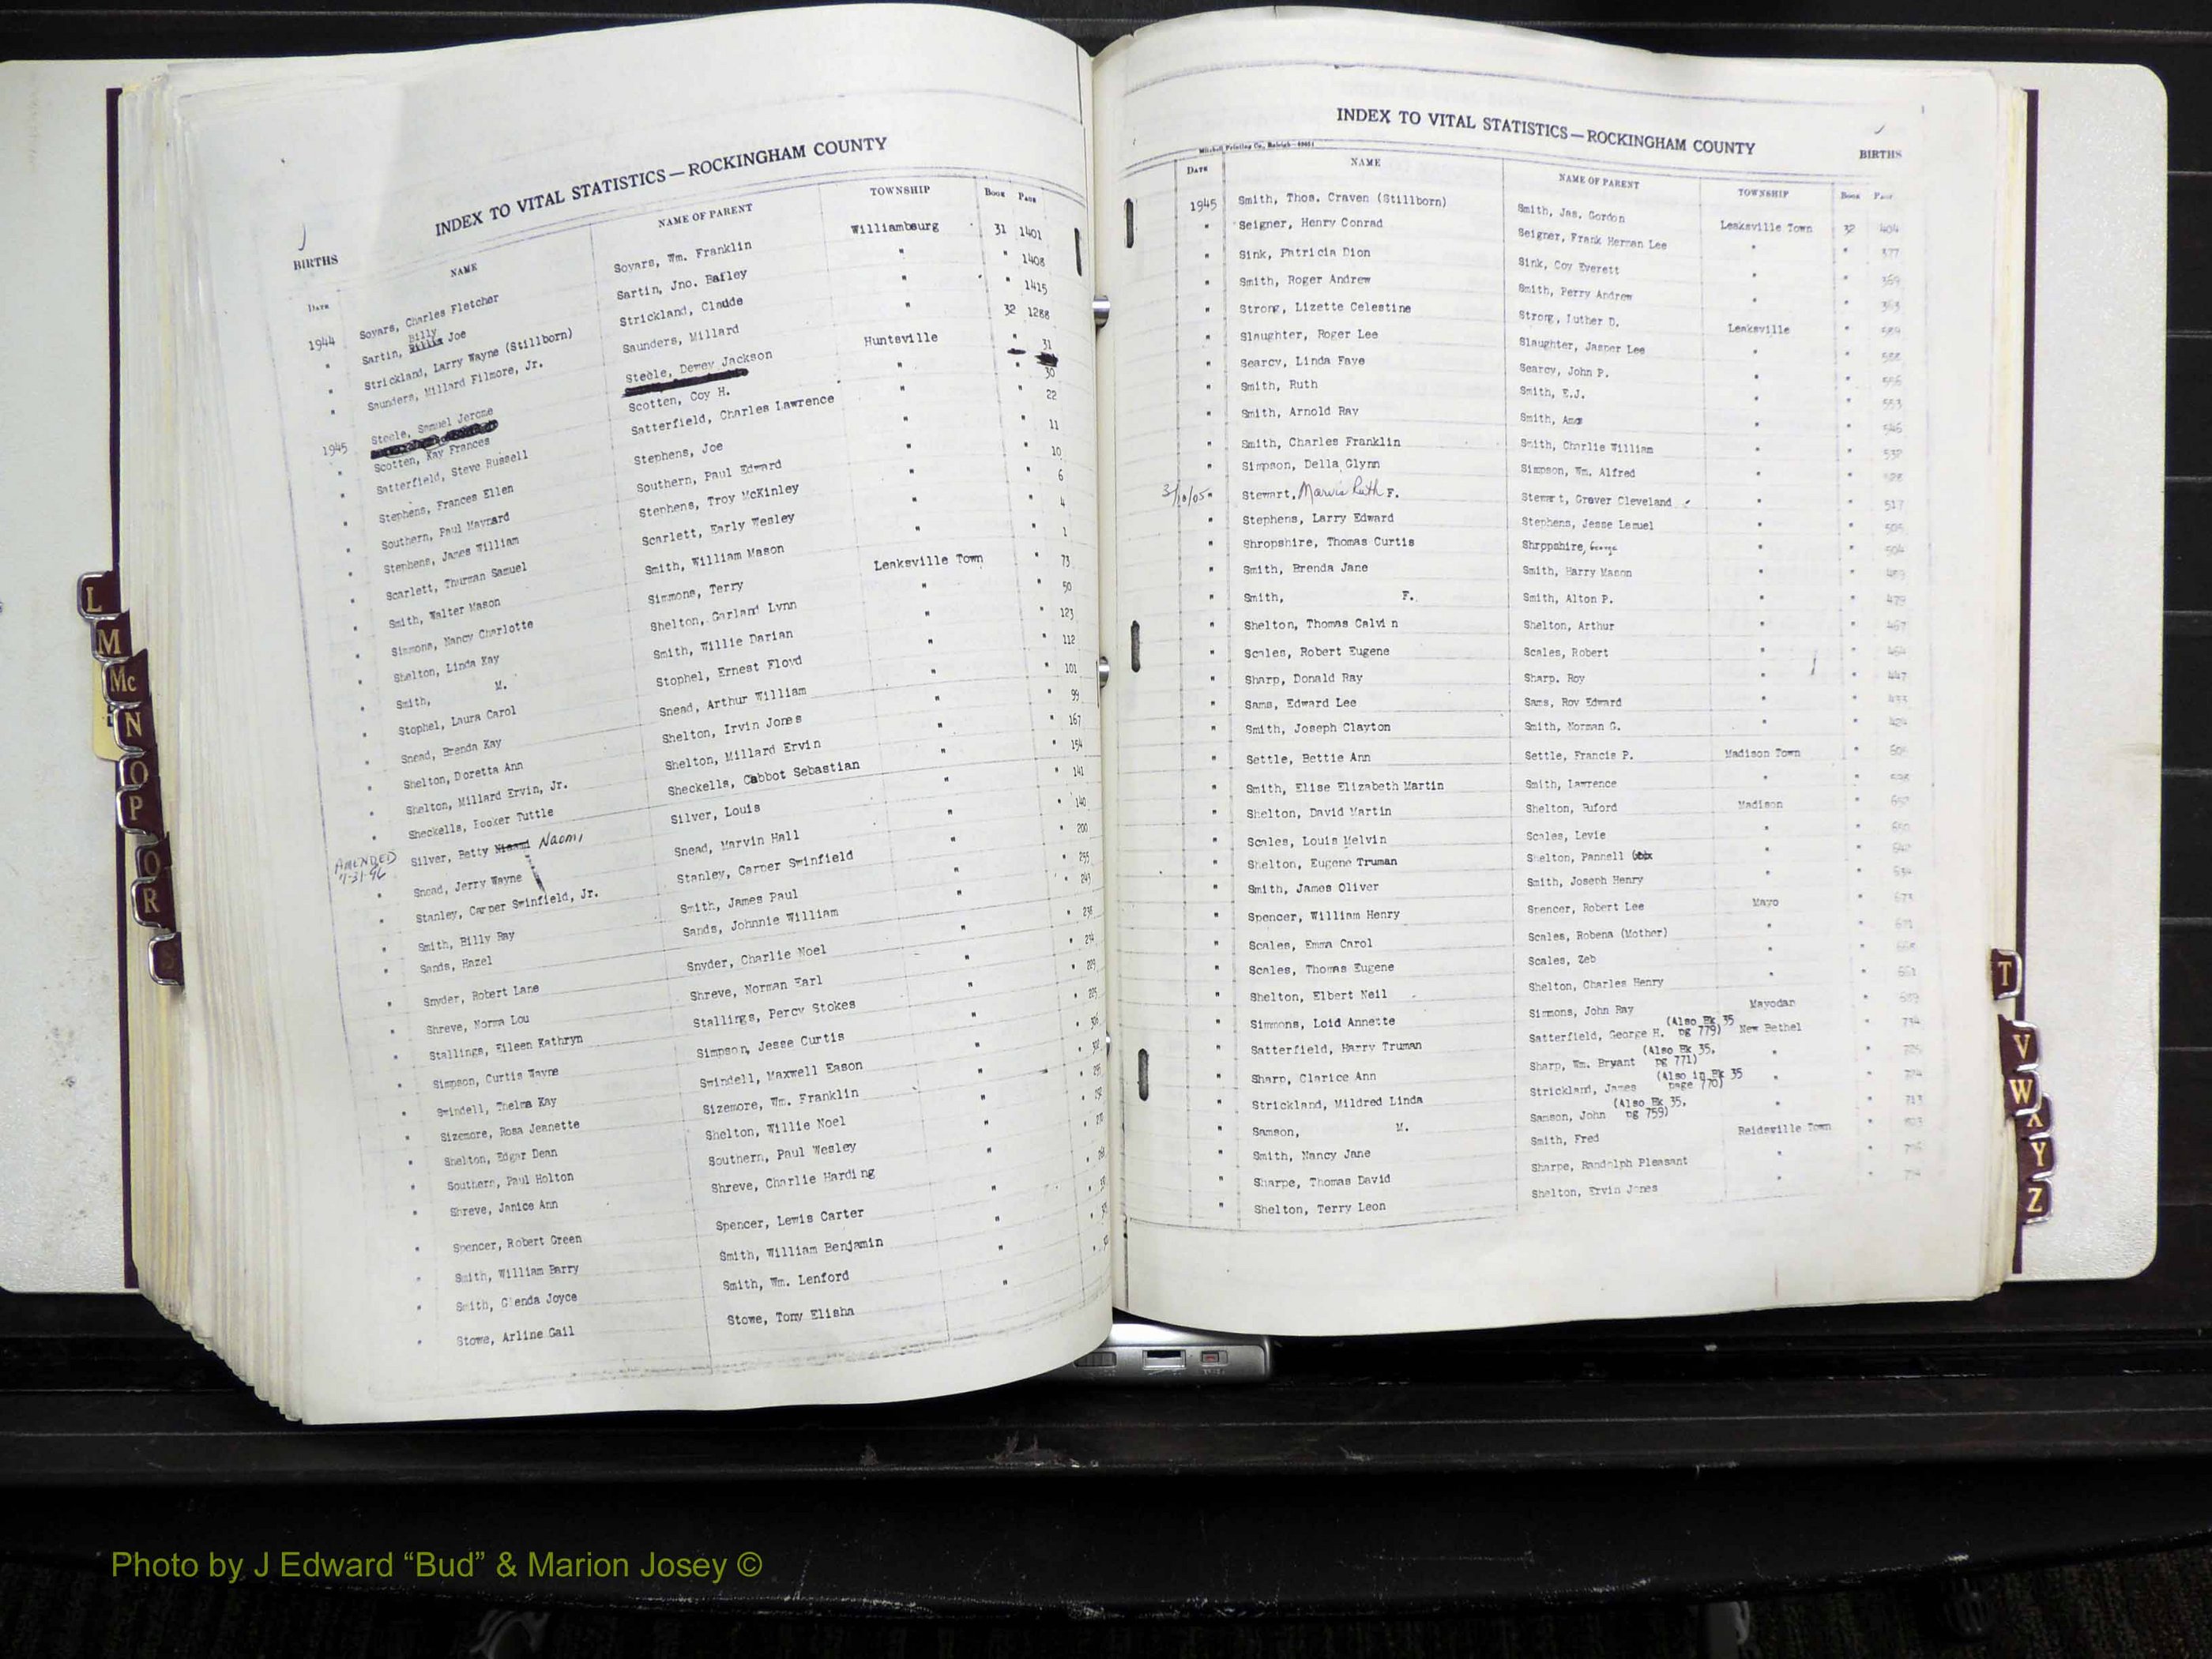 INDEX TO VITAL STATISTICS—ROCKINGHAM COUNTY
BIRTHS
DATE NAME NAME OF PARENT TOWNSHIP BOOK PAGE
1944 Sovars, Charles Fletcher Sovars, Wm. Franklin Williamsburg 31 1401
" Sartin, Billy Joe Sartin, Jno. Bailey " " 1408
" Strickland, Larry Wayne (Stillborn) Strickland, Claude " " 1415
" Saunders, Millard Filmore, Jr. Saunders, Millard " 32 1288
1945 Steele, Samuel Jerome Steele, Dewey Jackson Huntsville " 31
" Scotten, Kay Frances Scotten, Coy H. " " 30
" Satterfield, Steve Russell Satterfield, Charles Lawrence " " 22
" Stephens, Frances Ellen Stephens, Joe " " 11
" Southern, Paul Maynard Southern, Paul Edward " " 10
" Stephens, James William Stephens, Troy McKinley " " 6
" Scarlett, Thurman Samuel Scarlett, Early Wesley " " 4
" Smith, Walter Mason Smith, William Mason " " 1
" Simmons, Nancy Charlotte Simmons, Terry Leaksville Town " 73
" Shelton, Linda Kay Shelton, Garland Lynn " " 50
" Smith, M. Smith, Willie Darian " " 123
" Stophel, Laura Carol Stophel, Ernest Floyd " " 112
" Snead, Brenda Kay Snead, Arthur William " " 101
" Shelton, Doretta Ann Shelton, Irvin Jones " " 99
" Shelton, Millard Ervin, Jr. Shelton, Millard Ervin " " 167
" Sheckells, Hooker Tuttle Sheckells, Cabbot Sebastian " " 154
AMENDED 7-31-96 Silver, Betty Naomi Silver, Louis " " 141
" Snead, Jerry Wayne Snead, Marvin Hall " " 140
" Stanley, Carper Swinfield, Jr. Stanley, Carper Swinfield " " 200
" Smith, Billy Ray Smith, James Paul " " 255
" Sands, Hazel Sands, Johnnie William " "
" Snyder, Robert Lane Snyder, Charlie Noel " "
" Shreve, Norma Lou Shreve, Norman Earl " "
" Stallings, Eileen Kathryn Stallings, Percy Stokes " "
" Simpson, Curtis Wayne Simpson, Jesse Curtis " "
" Swindell, Thelma Kay Swindell, Maxwell Eason " "
" Sizemore, Rosa Jeanette Sizemore, Wm. Franklin " "
" Shelton, Edgar Dean Shelton, Willie Noel " "
" Southern, Paul Holton Southern, Paul Wesley " "
" Shreve, Janice Ann Shreve, Charlie Harding " "
" Spencer, Robert Green Spencer, Lewis Carter " "
" Smith, William Barry Smith, William Benjamin " "
" Smith, Glenda Joyce Smith, Wm. Lenford " "
" Stowe, Arline Gail Stowe, Tony Elisha "
L
M
Mc
N
O
P
Q
R
S
INDEX TO VITAL STATISTICS—ROCKINGHAM COUNTY
BIRTHS
Mitchell Printing Co., Raleigh
DATE NAME NAME OF PARENT TOWNSHIP BOOK PAGE
1945 Smith, Thos. Craven (Stillborn) Smith, Jas. Gordon Leaksville Town 32 404
" Seigner, Henry Conrad Seigner, Frank Herman Lee " " 377
" Sink, Patricia Dion Sink, Coy Everett " " 369
" Smith, Roger Andrew Smith, Perry Andrew " " 363
" Strong, Lizette Celestine Strong, Luther D. Leaksville " 589
" Slaughter, Roger Lee Slaughter, Jasper Lee " "
" Searcy, Linda Faye Searcy, John P. " " 556
" Smith, Ruth Smith, E.J. " " 553
" Smith, Arnold Ray Smith, Amos " " 546
" Smith, Charles Franklin Smith, Charlie William " " 532
" Simpson, Della Glynn Simpson, Wm. Alfred " "
3/10/05 " Stewart, Mavis Ruth F. Stewart, Grover Cleveland " " 517
" Stephens, Larry Edward Stephens, Jesse Lemuel " "
" Shropshire, Thomas Curtis Shropshire, George " " 504
" Smith, Brenda Jane Smith, Harry Mason " "
" Smith, F. Smith, Alton P. " " 479
" Shelton, Thomas Calvin Shelton, Arthur " " 467
" Scales, Robert Eugene Scales, Robert " "
" Sharp, Donald Ray Sharp. Roy " " 447
" Sams, Edward Lee Sams, Roy Edward " " 433
" Smith, Joseph Clayton Smith, Norman G. " " 424
" Settle, Bettie Ann Settle, Francis P. Madison Town "
" Smith, Elise Elizabeth Martin Smith, Lawrence " "
" Shelton, David Martin Shelton, Buford Madison "
" Scales, Louis Melvin Scales, Levie " "
" Shelton, Eugene Truman Shelton, Pannell " "
" Smith, James Oliver Smith, Joseph Henry " " 634
" Spencer, William Henry Spencer, Robert Lee Mayo " 673
" Scales, Emma Carol Scales, Robena (Mother) " " 671
" Scales, Thomas Eugene Scales, Zeb " "
" Shelton, Elbert Neil Shelton, Charles Henry " " 661
" Simmons, Loid Annette Simmons, John Ray Mayodan "
" Satterfield, Harry Truman Satterfield, George H. (Also Bk 35 pg 779) New Bethel " 734
" Sharp, Clarice Ann Sharp, Wm. Bryant (Also Bk 35, pg 771) " "
" Strickland, Mildred Linda Strickland, James (Also in Bk 35 page 770) " " 724
" Samson, M. Samson, John (Also Bk 35, pg 759) " " 713
" Smith, Nancy Jane Smith, Fred Reidsville Town "
" Sharpe, Thomas David Sharpe, Randolph Pleasant " "
" Shelton, Terry Leon Shelton, Ervin Jones " "
T
V
W
X
Y
Z
Photo by J Edward “Bud” & Marion Josey ©